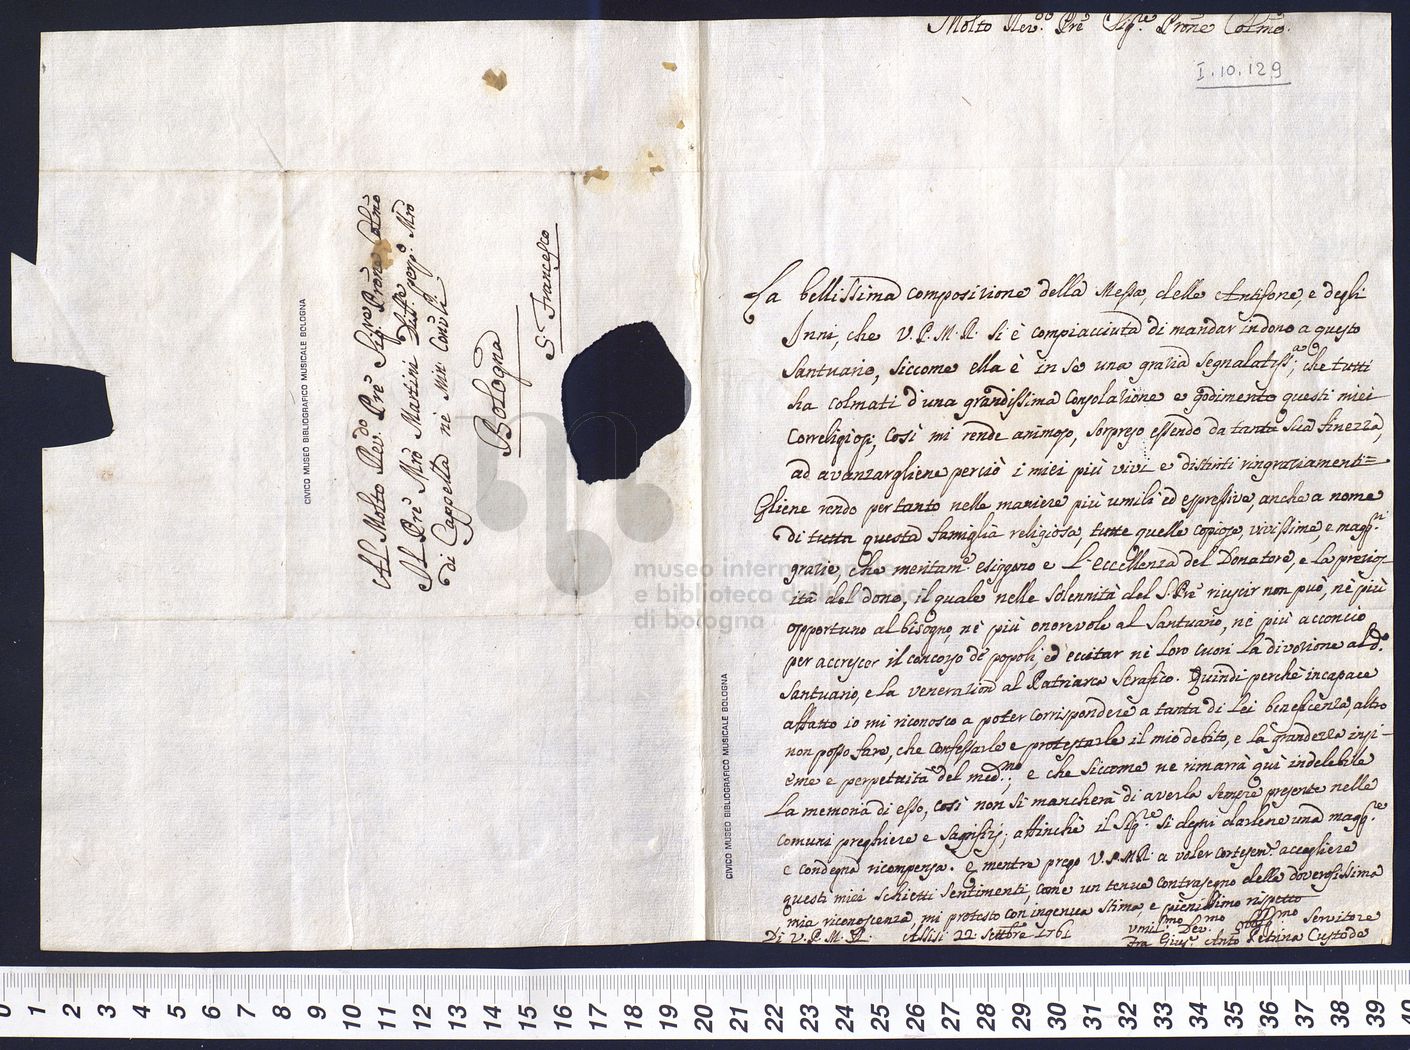 Al Molto Rev.do Pre Sig.re Prone Colmo
Il Pre Mro Martini Diff.re perp.o Mro
di Cappella ne Min: Conv.li
Bologna
S. Francesco
CIVICO MUSEO BIBLIOGRAFICO MUSICALE BOLOGNA
Molto Rev.do Pre Sig.re Prone Colmo.
I.10.129
La bellissima composizione della Messa, delle Antifone, e degli
Inni, che V.P.M.R. si è compiacciuta di mandar in dono a questo
Santuario, siccome ella è in se una grazia segnalatiss.a, che tutti
ha colmati d'una grandissima consolazione e godimento questi miei
Correligiosi; così mi rende animoso, sorpreso essendo da tanta sua finezza,
ad avanzargliene perciò i miei più vivi e distinti ringraziamenti=
Gliene rendo pertanto nelle maniere più umili ed espressive, anche a nome
di tutta questa famiglia religiosa, tutte quelle copiose, vivissime, e magg.ri
grazie, che meritam.e esiggono e l'eccellenza del Donatore, e la prezios-
ità del dono, il quale nelle solennità del S. Pre riuscir non può, nè più
opportuno al bisogno, nè più onorevole al Santuario, nè più acconcio
per accrescer il concorso de popoli, ed eccitar nè loro cuori la divozione al d.o
Santuario, e la venerazion al Patriarca Serafico. Quindi perchè incapace
affatto io mi riconosco a poter corrispondere a tanta di Lei beneficenza, altro
non posso fare, che confessarle e protestarle il mio debito, e la grandezza insi-
eme e perpetuità del med.mo; e che siccome ne rimarrà quì indelebile
la memoria di esso, così non si mancherà di averla sempre presente nelle
comuni preghiere e sagrifizj; affinchè il Sig.re si degni darlene una magg.re
e condegna ricompensa. E mentre prego V.P.M.R. a voler cortesem.e accogliere
questi miei schietti sentimenti, come un tenue contrasegno della doverosissima
mia riconoscenza, mi protesto con ingenua stima, e pienissimo rispetto
Di V.P.M.R. Assisi 22 Settbre 1761
Umil.mo Dev.mo Servitore
Fra Gius.e Anto Petrina Custode
CIVICO MUSEO BIBLIOGRAFICO MUSICALE BOLOGNA
museo internazionale
e biblioteca della musica
di bologna
0 1 2 3 4 5 6 7 8 9 10 11 12 13 14 15 16 17 18 19 20 21 22 23 24 25 26 27 28 29 30 31 32 33 34 35 36 37 38 39 40